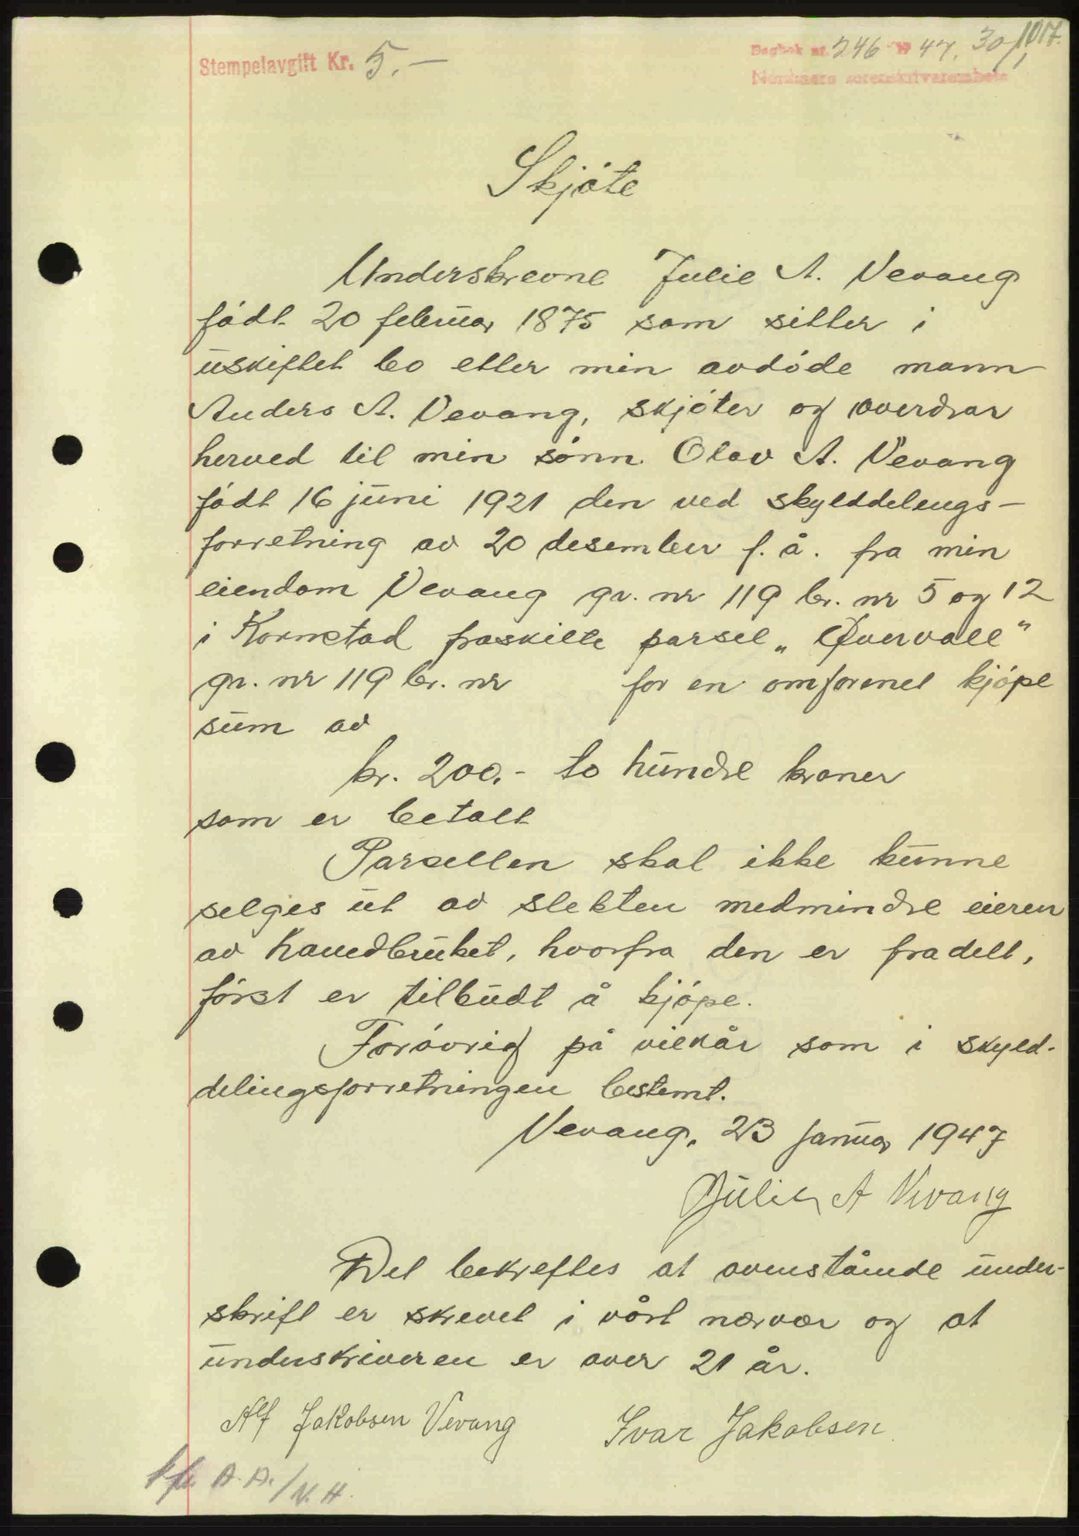 Stempelavgift Kr. 5.-
Dagbok nr. 246 19 47. 30/1
1017.
Nordmøre sorenskriverembete
Skjøte
Underskrevne Julie A. Vevang
født 20 februar 1875 som sitter i
uskiftet bo etter min avdøde mann
Anders A. Vevang, skjøter og overdrar
herved til min sønn Olav A. Vevang
født 16 juni 1921 den ved skylddelings-
forretning av 20 desember f. å. fra min
eiendom Vevang gr. nr 119 br. nr 5 og 12
i Kornstad fraskilte parsel „Øvervall"
gr. nr 119 br. nr for en omforenet kjøpe
sum av
kr. 200.- to hundre kroner
som er betalt
Parsellen skal ikke kunne
selges ut av slekten medmindre eieren
av havedbruket, hvorfra den er fradelt,
først er tilbudt å kjøpe.
Forøvrig på vilkår som i skyld-
delingsforretningen bestemt.
Vevang, 23 januar 1947
Julie A Vevang
Det bekreftes at ovenstående under-
skrift er skrevet i vårt nærvær og at
underskriveren er over 21 år.
Alf Jakobsen Vevang Ivar Jakobsen
A. A. / N. H.